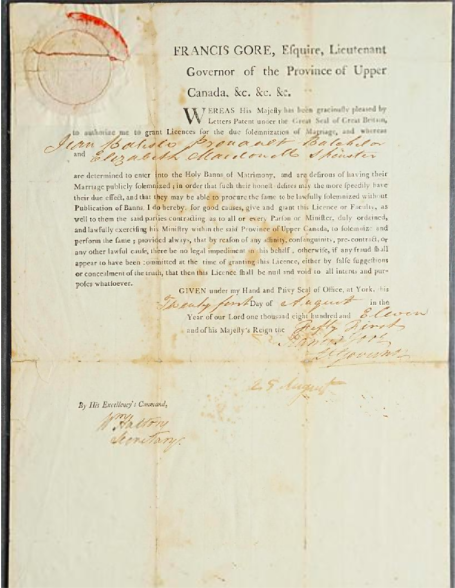 FRANCIS GORE, Esquire, Lieutenant
Governor of the Province of Upper
Canada, &c. &c. &c.
WHEREAS His Majesty has been graciously pleased by
Letters Patent under the Great Seal of Great Britain,
to authorize me to grant Licences for the due solemnization of Marriage, and whereas
Jean Batiste Batchelor
and Elizabeth Macdonell Spinster
are determined to enter into the Holy Banns of Matrimony, and are desirous of having their
Marriage publicly solemnized; in order that such their honest desires may the more speedily have
their due effect, and that they may be able to procure the same to be lawfully solemnized without
Publication of Banns. I do hereby, for good causes, give and grant this Licence or Faculty, as
well to them the said parties contracting as to all or every Parson or Minister, duly ordained,
and lawfully exercising his Ministry within the said Province of Upper Canada, to solemnize and
perform the same; provided always, that by reason of any affinity, consanguinity, pre-contract, or
any other lawful cause, there be no legal impediment in this behalf; otherwise, if any fraud shall
appear to have been committed at the time of granting this Licence, either by false suggestions
or concealment of the truth, that then this Licence shall be null and void to all intents and pur-
poses whatsoever.
GIVEN under my Hand and Privy Seal of Office, at York, this
Twenty first Day of August in the
Year of our Lord one thousand eight hundred and Eleven
and of his Majesty's Reign the Fifty First
Francis Gore
August
By His Excellency's Command,
Wm Halton
Secretary.